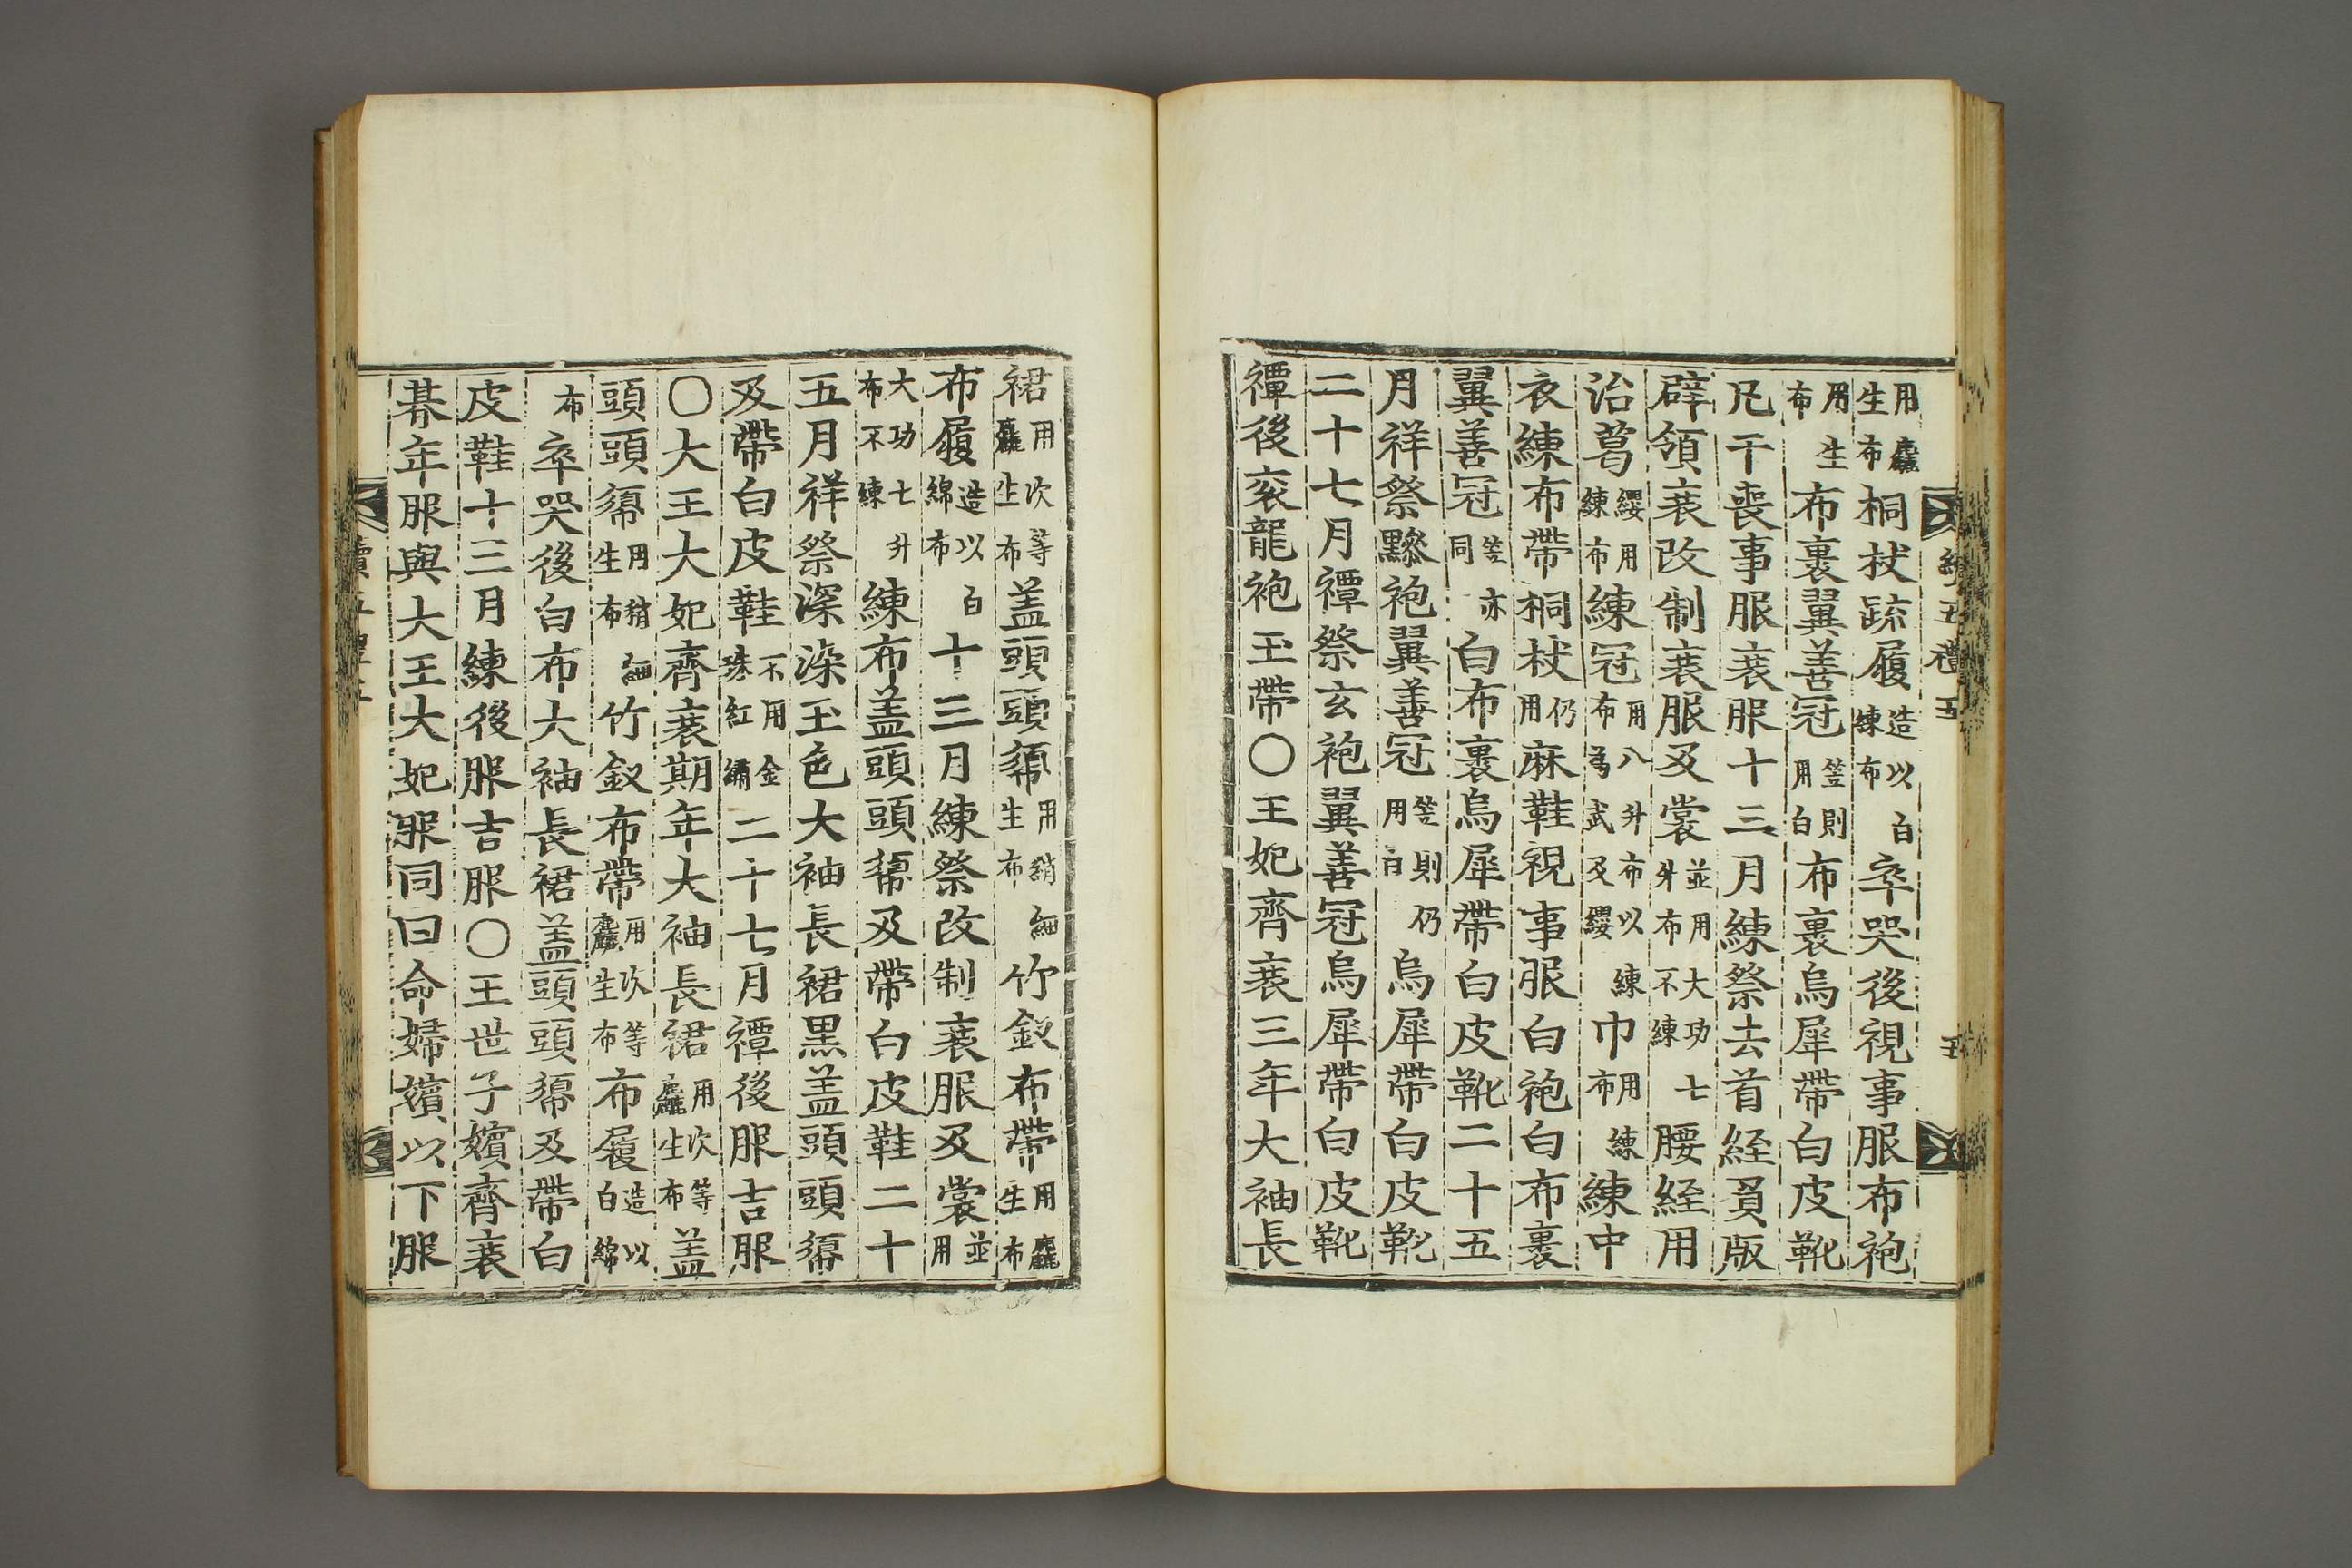 用麤生布布桐杖䟽履造以白練布卒哭後視事服布袍
用生布布裹翼善冠笠則用白布裹烏犀帶白皮靴
凡干喪事服衰服十三月練祭去首絰負版
辟領衰改制衰服及裳並用大功七升布不練腰絰用
治葛纓用練布練冠用八升布以練布爲武及纓巾用練布練中
衣練布帶桐杖仍用麻鞋視事服白袍白布裹
翼善冠笠亦同白布裹烏犀帶白皮靴二十五
月祥祭黲袍翼善冠笠則仍用白烏犀帶白皮靴
二十七月禫祭玄袍翼善冠烏犀帶白皮靴
禫後衮龍袍玉帶〇王妃齊衰三年大袖長
五禮五
五
裙用次等麤生布盖頭頭𢄼用稍細生布竹釵布帶用麤生布
布履造以白綿布十三月練祭改制衰服及裳並用
大功七升布不練練布盖頭頭𢄼及帶白皮鞋二十
五月祥祭深染玉色大袖長裙黑盖頭頭𢄼
及帶白皮鞋不用金珠紅繡二十七月禫後服吉服
〇大王大妃齊衰期年大袖長裙用次等麤生布盖
頭頭𢄼用稍細生布竹釵布帶用次等麤生布布履造以白綿
布卒哭後白布大袖長裙盖頭頭𢄼及帶白
皮鞋十三月練後服吉服〇王世子嬪齊衰
朞年服與大王大妃服同曰命婦嬪以下服